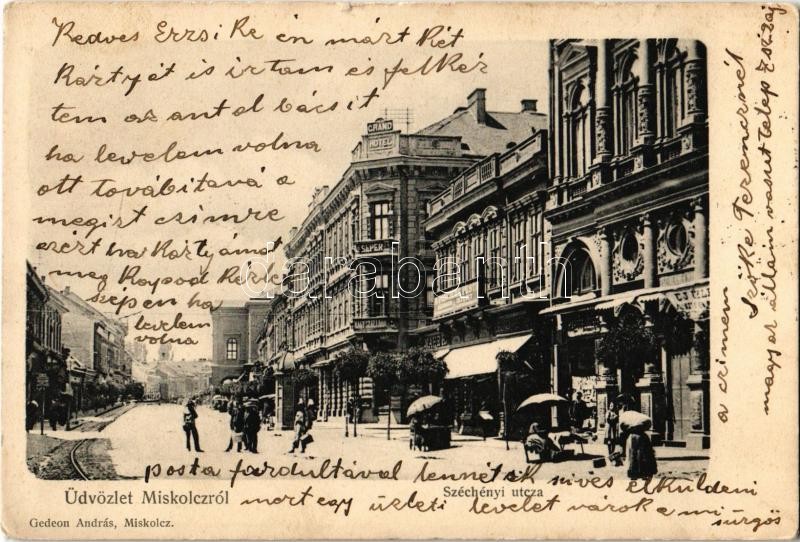 Kedves Erzsike én márt két
kártyát is irtam és felkér
tem az antal bácsit
ha levelem volna
ott továbitaná a
megirt czimre
ezért ha kártyámat
meg kapod kérlek
szépen ha
levelem
volna
posta fordultával lennétek szives elküldeni
mert egy üzleti levelet várok a mi
sürgös
a czimem
Teremernét
magyar állam vasut telep
GRAND
HOTEL
darabanth
Üdvözlet Miskolczról
Széchényi utcza
Gedeon András, Miskolcz.